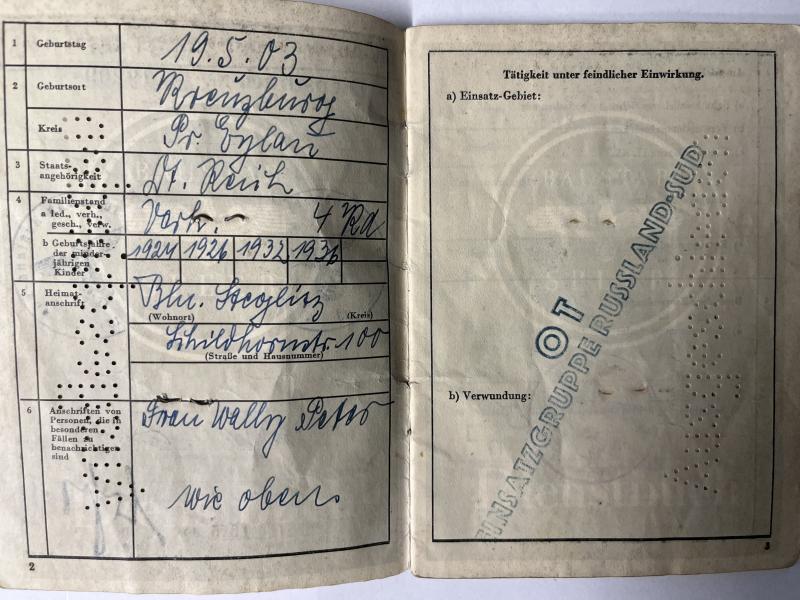 1 Geburtstag 19.5.03
2 Geburtsort Kreuzburg
Kreis Pr. Eylau
3 Staats-
angehörigkeit Dt. Reich
4 Familienstand
a led., verh.,
gesch., verw. Verh. - 4 Kd
b Geburtsjahre
der minder-
jährigen
Kinder 1924 1926 1932 1936
5 Heimat-
anschrift Bln. Steglitz
(Wohnort) (Kreis)
Schildhornstr. 100
(Straße und Hausnummer)
6 Anschriften von
Personen, die in
besonderen
Fällen zu
benachrichtigen
sind
Frau Wally Peter
wie oben.
2
Tätigkeit unter feindlicher Einwirkung.
a) Einsatz-Gebiet:
OT
EINSATZGRUPPE RUSSLAND-SÜD
b) Verwundung:
3